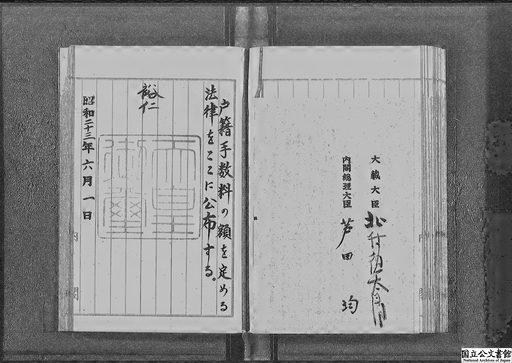 戸籍手数料の額を定める
法律をここに公布する。
裕仁
昭和二十三年六月一日
天皇御璽
大蔵大臣 北村徳太郎
内閣総理大臣 芦田均
内閣
国立公文書館
National Archives of Japan